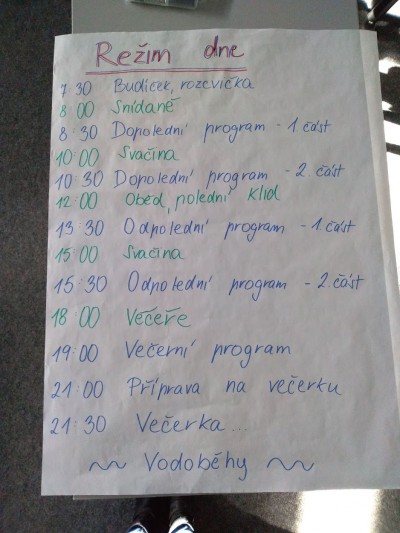 Režim dne
7:30 Budíček, rozcvička
8:00 Snídaně
8:30 Dopolední program - 1. část
10:00 Svačina
10:30 Dopolední program - 2. část
12:00 Oběd, polední klid
13:30 Odpolední program - 1. část
15:00 Svačina
15:30 Odpolední program - 2. část
18:00 Večeře
19:00 Večerní program
21:00 Příprava na večerku
21:30 Večerka...
~ Vodoběhy ~